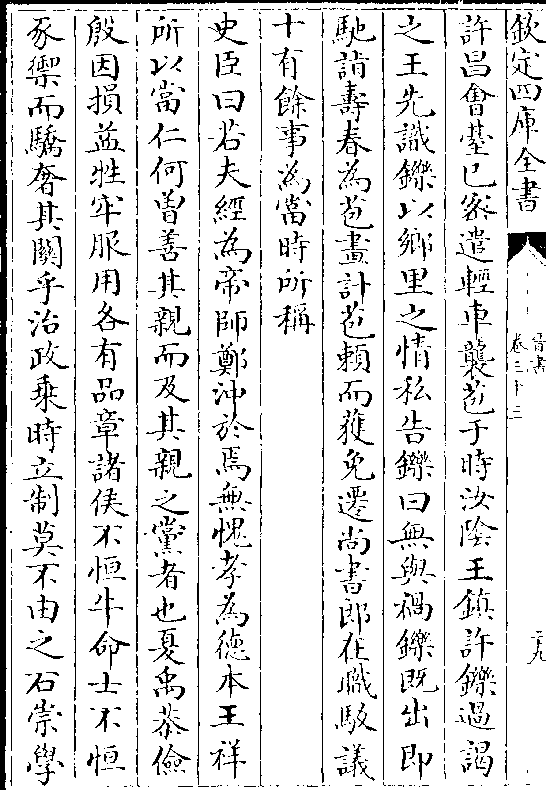 欽定四庫全書
晉書
卷三十三
二九
許昌會臺已密遣輕車襲苞于時汝隂王鎮許鑠過謁
之王先識鑠以鄉里之情私告鑠曰無與禍鑠既出即
馳詣壽春為苞畫計苞賴而獲免遷尚書郎在職駮議
十有餘事為當時所稱
史臣曰若夫經為帝師鄭沖於焉無愧孝為德本王祥
所以當仁何曾善其親而及其親之黨者也夏禹恭儉
殷因損益牲牢服用各有品章諸侯不恒牛命士不恒
豕禦而驕奢其關乎治政乗時立制莫不由之石崇學